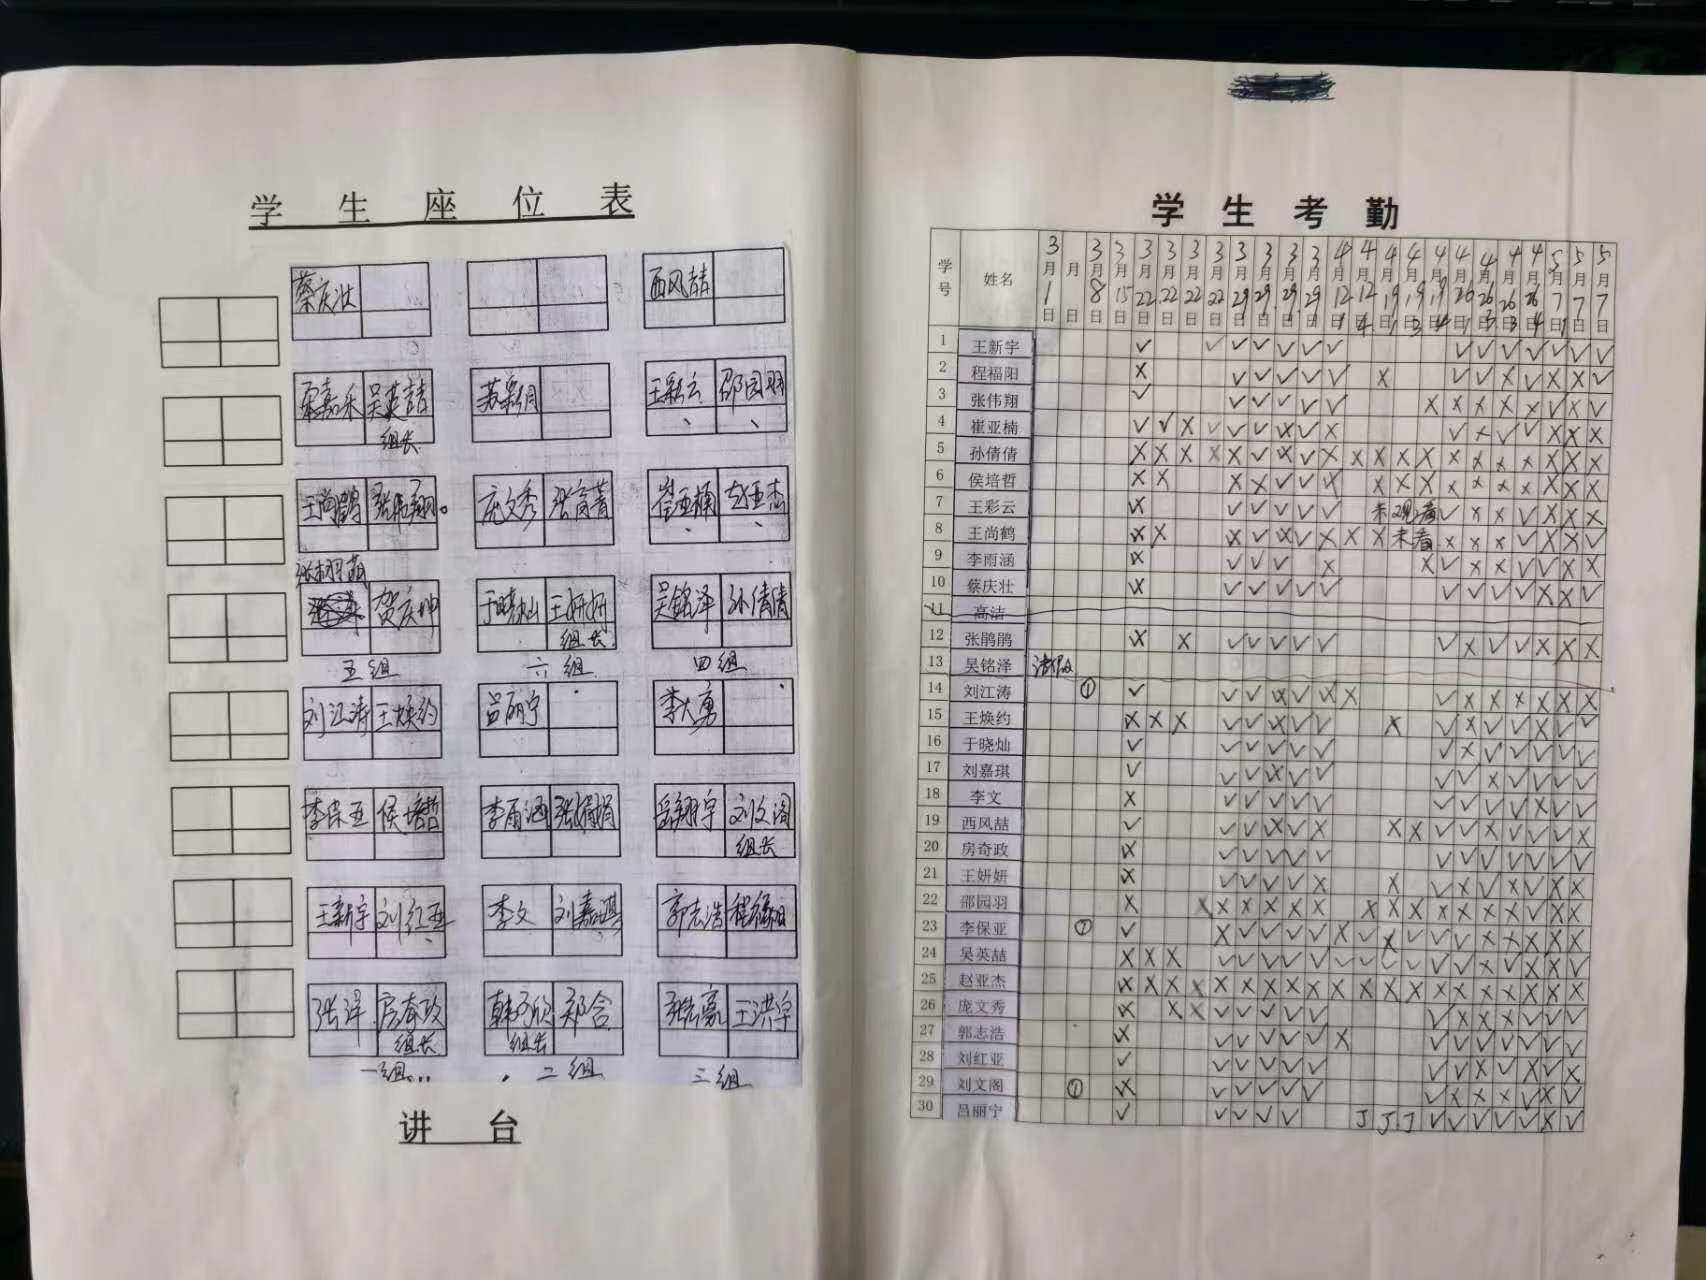 学 生 座 位 表
蔡庆壮 西风喆
栗嘉禾 吴英喆 苏彩月 王彩云 邵园羽
组长
王尚鹤 张伟翔 庞文秀 张富菁 崔亚楠 赵亚杰
贺庆坤 于晓灿 王妍妍 吴铭泽 孙倩倩
组长
五组 六组 四组
刘江涛 王焕约 吕丽宁 李大勇
李保亚 侯培哲 李雨涵 张鹃鹃 岳翔宇 刘文阁
组长
王新宇 刘红亚 李文 刘嘉琪 郭志浩 程福阳
张泽 房奇政 韩子欣 郑含 王洪宇
组长 组长
一组 二组 三组
讲 台
学 生 考 勤
学号 姓名 3月1日 月 日 3月8日 3月15日 3月22日 3月22日 3月22日 3月22日 3月29日 3月29日 3月29日 3月29日 4月12日 4月12日 4月19日 4月19日 4月19日 4月26日 4月26日 4月26日 4月26日 5月7日 5月7日 5月7日
1 王新宇
2 程福阳
3 张伟翔
4 崔亚楠
5 孙倩倩
6 侯培哲
7 王彩云 未观看
8 王尚鹤 未看
9 李雨涵
10 蔡庆壮
11 高洁
12 张鹃鹃
13 吴铭泽
14 刘江涛 ①
15 王焕约
16 于晓灿
17 刘嘉琪
18 李文
19 西风喆
20 房奇政
21 王妍妍
22 邵园羽
23 李保亚 ①
24 吴英喆
25 赵亚杰
26 庞文秀
27 郭志浩
28 刘红亚
29 刘文阁 ①
30 吕丽宁